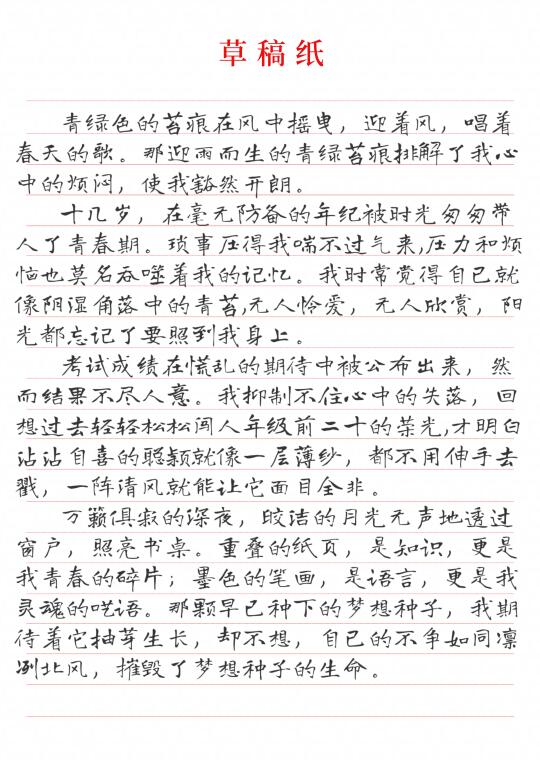 草稿纸
青绿色的苔痕在风中摇曳，迎着风，唱着
春天的歌。那迎雨而生的青绿苔痕排解了我心
中的烦闷，使我豁然开朗。
十几岁，在毫无防备的年纪被时光匆匆带
人了青春期。琐事压得我喘不过气来,压力和烦
恼也莫名吞噬着我的记忆。我时常觉得自己就
像阴湿角落中的青苔,无人怜爱，无人欣赏，阳
光都忘记了要照到我身上。
考试成绩在慌乱的期待中被公布出来，然
而结果不尽人意。我抑制不住心中的失落，回
想过去轻轻松松闯人年级前二十的荣光,才明白
沾沾自喜的聪颖就像一层薄纱，都不用伸手去
戳，一阵清风就能让它面目全非。
万籁俱寂的深夜，皎洁的月光无声地透过
窗户，照亮书桌。重叠的纸页，是知识，更是
我青春的碎片；墨色的笔画，是语言，更是我
灵魂的呓语。那颗早已种下的梦想种子，我期
待着它抽芽生长，却不想，自己的不争如同凛
冽北风，摧毁了梦想种子的生命。